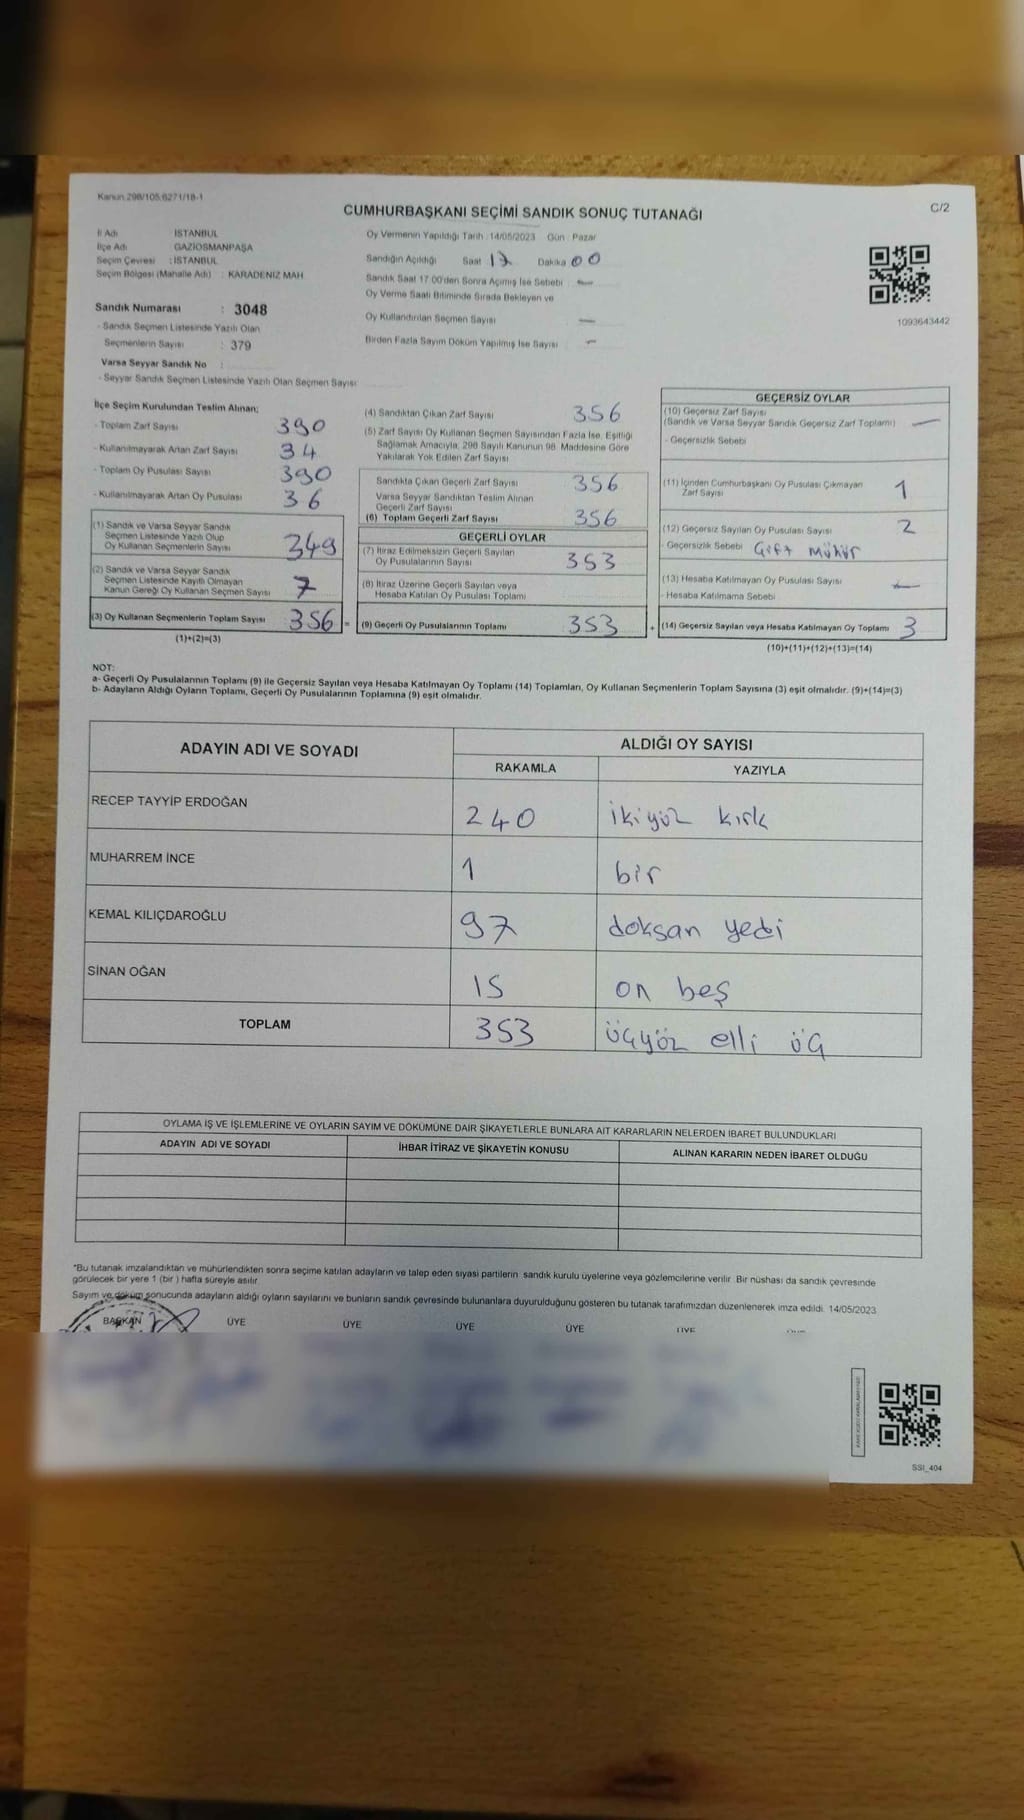 Kanun 298/105,6271/18-1
C/2
CUMHURBAŞKANI SEÇİMİ SANDIK SONUÇ TUTANAĞI
İl Adı : İSTANBUL
İlçe Adı : GAZİOSMANPAŞA
Seçim Çevresi : İSTANBUL
Seçim Bölgesi (Mahalle Adı) : KARADENİZ MAH
Oy Vermenin Yapıldığı Tarih :14/05/2023 Gün : Pazar
Sandığın Açıldığı Saat 17 Dakika 00
Sandık Saat 17:00'den Sonra Açımış İse Sebebi : —
Oy Verme Saati Bitiminde Sırada Bekleyen ve
Oy Kullandırılan Seçmen Sayısı : —
Birden Fazla Sayım Döküm Yapılmış İse Sayısı : —
1093643442
Sandık Numarası : 3048
- Sandık Seçmen Listesinde Yazılı Olan
Seçmenlerin Sayısı : 379
Varsa Seyyar Sandık No :
- Seyyar Sandık Seçmen Listesinde Yazılı Olan Seçmen Sayısı :
İlçe Seçim Kurulundan Teslim Alınan;
- Toplam Zarf Sayısı : 390
- Kullanılmayarak Artan Zarf Sayısı : 34
- Toplam Oy Pusulası Sayısı : 390
- Kullanılmayarak Artan Oy Pusulası : 36
(1) Sandık ve Varsa Seyyar Sandık
Seçmen Listesinde Yazılı Olup
Oy Kullanan Seçmenlerin Sayısı : 349
(2) Sandık ve Varsa Seyyar Sandık
Seçmen Listesinde Kayıtlı Olmayan
Kanun Gereği Oy Kullanan Seçmen Sayısı : 7
(3) Oy Kullanan Seçmenlerin Toplam Sayısı : 356 =
(1)+(2)=(3)
(4) Sandıktan Çıkan Zarf Sayısı : 356
(5) Zarf Sayısı Oy Kullanan Seçmen Sayısından Fazla İse, Eşitliği
Sağlamak Amacıyla, 298 Sayılı Kanunun 98. Maddesine Göre
Yakılarak Yok Edilen Zarf Sayısı :
Sandıkta Çıkan Geçerli Zarf Sayısı : 356
Varsa Seyyar Sandıktan Teslim Alınan
Geçerli Zarf Sayısı :
(6) Toplam Geçerli Zarf Sayısı : 356
GEÇERLİ OYLAR
(7) İtiraz Edilmeksizin Geçerli Sayılan
Oy Pusulalarının Sayısı : 353
(8) İtiraz Üzerine Geçerli Sayılan veya
Hesaba Katılan Oy Pusulası Toplamı :
(9) Geçerli Oy Pusulalarının Toplamı : 353 +
GEÇERSİZ OYLAR
(10) Geçersiz Zarf Sayısı
(Sandık ve Varsa Seyyar Sandık Geçersiz Zarf Toplamı) : —
- Geçersizlik Sebebi :
(11) İçinden Cumhurbaşkanı Oy Pusulası Çıkmayan
Zarf Sayısı : 1
(12) Geçersiz Sayılan Oy Pusulası Sayısı : 2
- Geçersizlik Sebebi : Çift Mühür
(13) Hesaba Katılmayan Oy Pusulası Sayısı : —
- Hesaba Katılmama Sebebi :
(14) Geçersiz Sayılan veya Hesaba Katılmayan Oy Toplamı : 3
(10)+(11)+(12)+(13)=(14)
NOT:
a- Geçerli Oy Pusulalarının Toplamı (9) ile Geçersiz Sayılan veya Hesaba Katılmayan Oy Toplamı (14) Toplamları, Oy Kullanan Seçmenlerin Toplam Sayısına (3) eşit olmalıdır. (9)+(14)=(3)
b- Adayların Aldığı Oyların Toplamı, Geçerli Oy Pusulalarının Toplamına (9) eşit olmalıdır.
ADAYIN ADI VE SOYADI
ALDIĞI OY SAYISI
RAKAMLA YAZIYLA
RECEP TAYYİP ERDOĞAN 240 ikiyüz kırk
MUHARREM İNCE 1 bir
KEMAL KILIÇDAROĞLU 97 doksan yedi
SİNAN OĞAN 15 on beş
TOPLAM 353 üçyüz elli üç
OYLAMA İŞ VE İŞLEMLERİNE VE OYLARIN SAYIM VE DÖKÜMÜNE DAİR ŞİKAYETLERLE BUNLARA AİT KARARLARIN NELERDEN İBARET BULUNDUKLARI
ADAYIN ADI VE SOYADI İHBAR İTİRAZ VE ŞİKAYETİN KONUSU ALINAN KARARIN NEDEN İBARET OLDUĞU
*Bu tutanak imzalandıktan ve mühürlendikten sonra seçime katılan adayların ve talep eden siyasi partilerin sandık kurulu üyelerine veya gözlemcilerine verilir. Bir nüshası da sandık çevresinde
görülecek bir yere 1 (bir ) hafta süreyle asılır.
Sayım ve döküm sonucunda adayların aldığı oyların sayılarını ve bunların sandık çevresinde bulunanlara duyurulduğunu gösteren bu tutanak tarafımızdan düzenlenerek imza edildi. 14/05/2023
BAŞKAN ÜYE ÜYE ÜYE ÜYE ÜYE
SSI_404